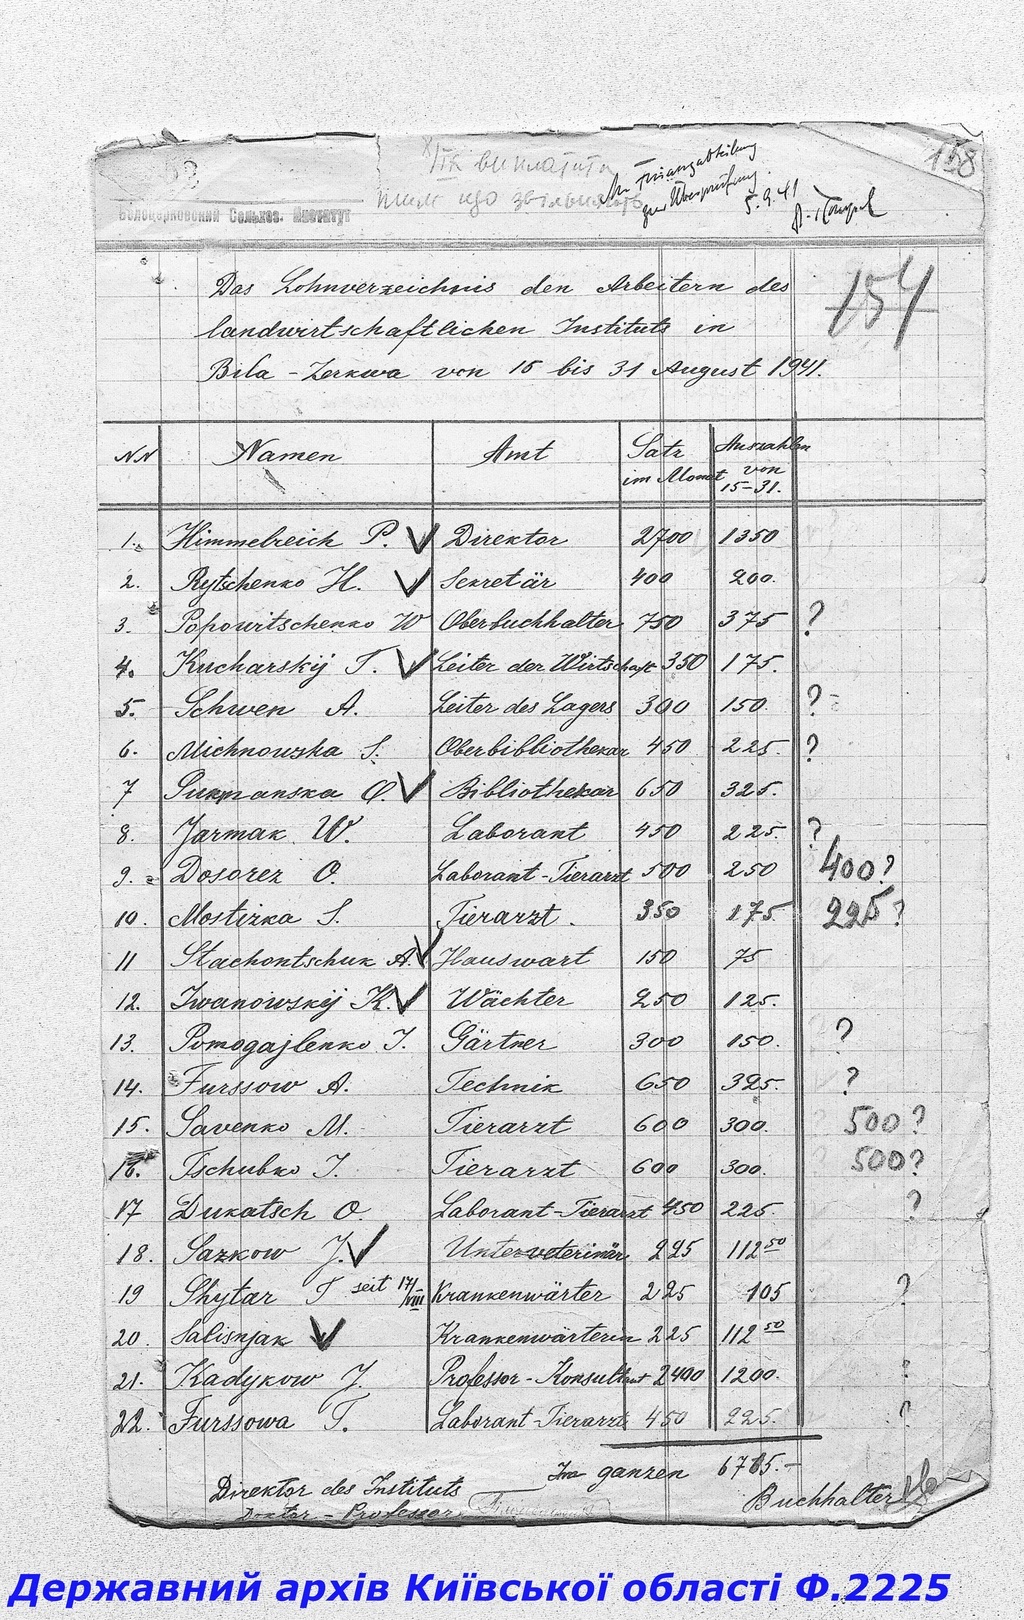 158
Хто виплатить
тим що звільняють
An Finanzabteilung
zur Überprüfung.
5.9.41
Белоцерковский Сельхоз. Институт
154
Das Lohnverzeichnis den Arbeitern des
landwirtschaftlichen Instituts in
Bila-Zerkwa von 15 bis 31 August 1941.
NN Namen Amt Satz im Monat Auszahlen von 15-31.
1. Himmelreich P. V Direktor 2700 1350
2. Rytschenko H. V Sekretär 400 200.
3. Popowitschenko W Oberbuchhalter 750 375 ?
4. Kucharskij T. V Leiter der Wirtschaft 350 175.
5. Schwen A. Leiter des Lagers 300 150. ?
6. Michnowska S. Oberbibliothekar 450 225. ?
7 O. V Bibliothekar 650 325.
8. Jarmak W. Laborant 450 225. ?
9. Dosorez O. Laborant-Tierarzt 500 250 400?
10. Mostizka S. Tierarzt. 350 175 225?
11 Stachontschuk A. V Hauswart 150 75
12. Iwanowskij K. V Wächter 250 125.
13. Pomogajlenko I. Gärtner 300 150. ?
14. Furssow A. Technik 650 325. ?
15. Savenko M. Tierarzt 600 300. 500?
16. Tschubko I. Tierarzt 600 300. 500?
17 Dukatsch O. Laborant-Tierarzt 450 225. ?
18. Sazkow J. V Unterveterinär 225 112 50
19 Shytar T seit 17/VIII Krankenwärter 225 105 ?
20. Salisnjak V Krankenwärterin 225 112 50
21. Kadykow J. Professor-Konsultant 2400 1200. ?
22. Furssowa T. Laborant-Tierarzt 450 225. ?
Im ganzen 6765.-
Direktor des Instituts
Doktor-Professor
Buchhalter
Державний архів Київської області Ф.2225